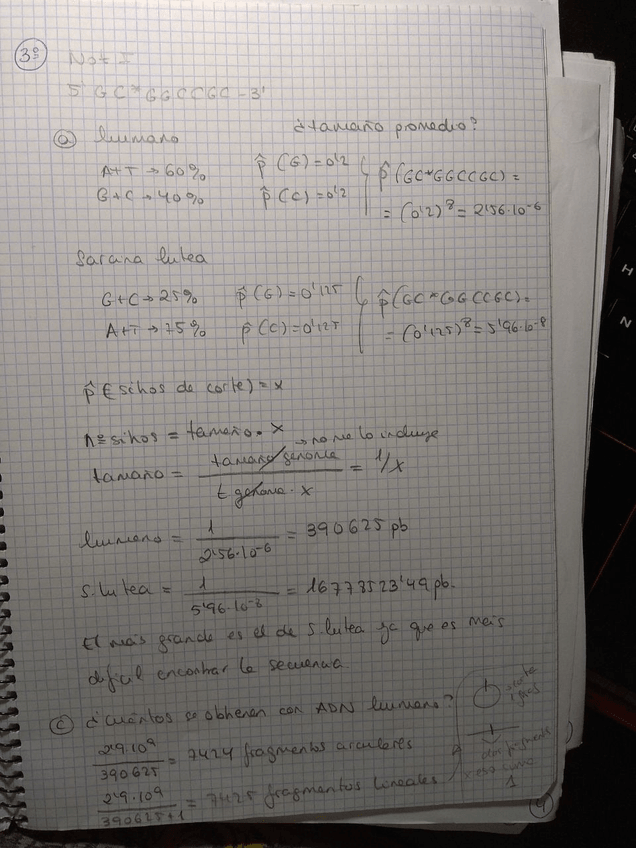 3º Not I
5' GC*GGCCGC-3'
¿tamaño promedio?
a) humano
A+T → 60%
G+C → 40%
p̂ (G) = 0'2
p̂ (C) = 0'2
p̂ (GC*GGCCGC) =
= (0'2)⁸ = 2'56·10⁻⁶
Sarcina lutea
G+C → 25%
A+T → 75%
p̂ (G) = 0'125
p̂ (C) = 0'125
p̂ (GC*GGCCGC) =
= (0'125)⁸ = 5'96·10⁻⁸
p̂ (sitios de corte) = x
nº sitios = tamaño · x
→ no me lo incluye
tamaño = tamaño genoma / t genoma · x = 1/x
humano = 1 / 2'56·10⁻⁶ = 390625 pb
S. lutea = 1 / 5'96·10⁻⁸ = 16778523'49 pb.
El más grande es el de S. lutea ya que es más
difícil encontrar la secuencia
c) ¿cuántos se obtienen con ADN humano?
2'9·10⁹ / 390625 = 7424 fragmentos circulares
2'9·10⁹ / 390625 + 1 = 7425 fragmentos lineales
1